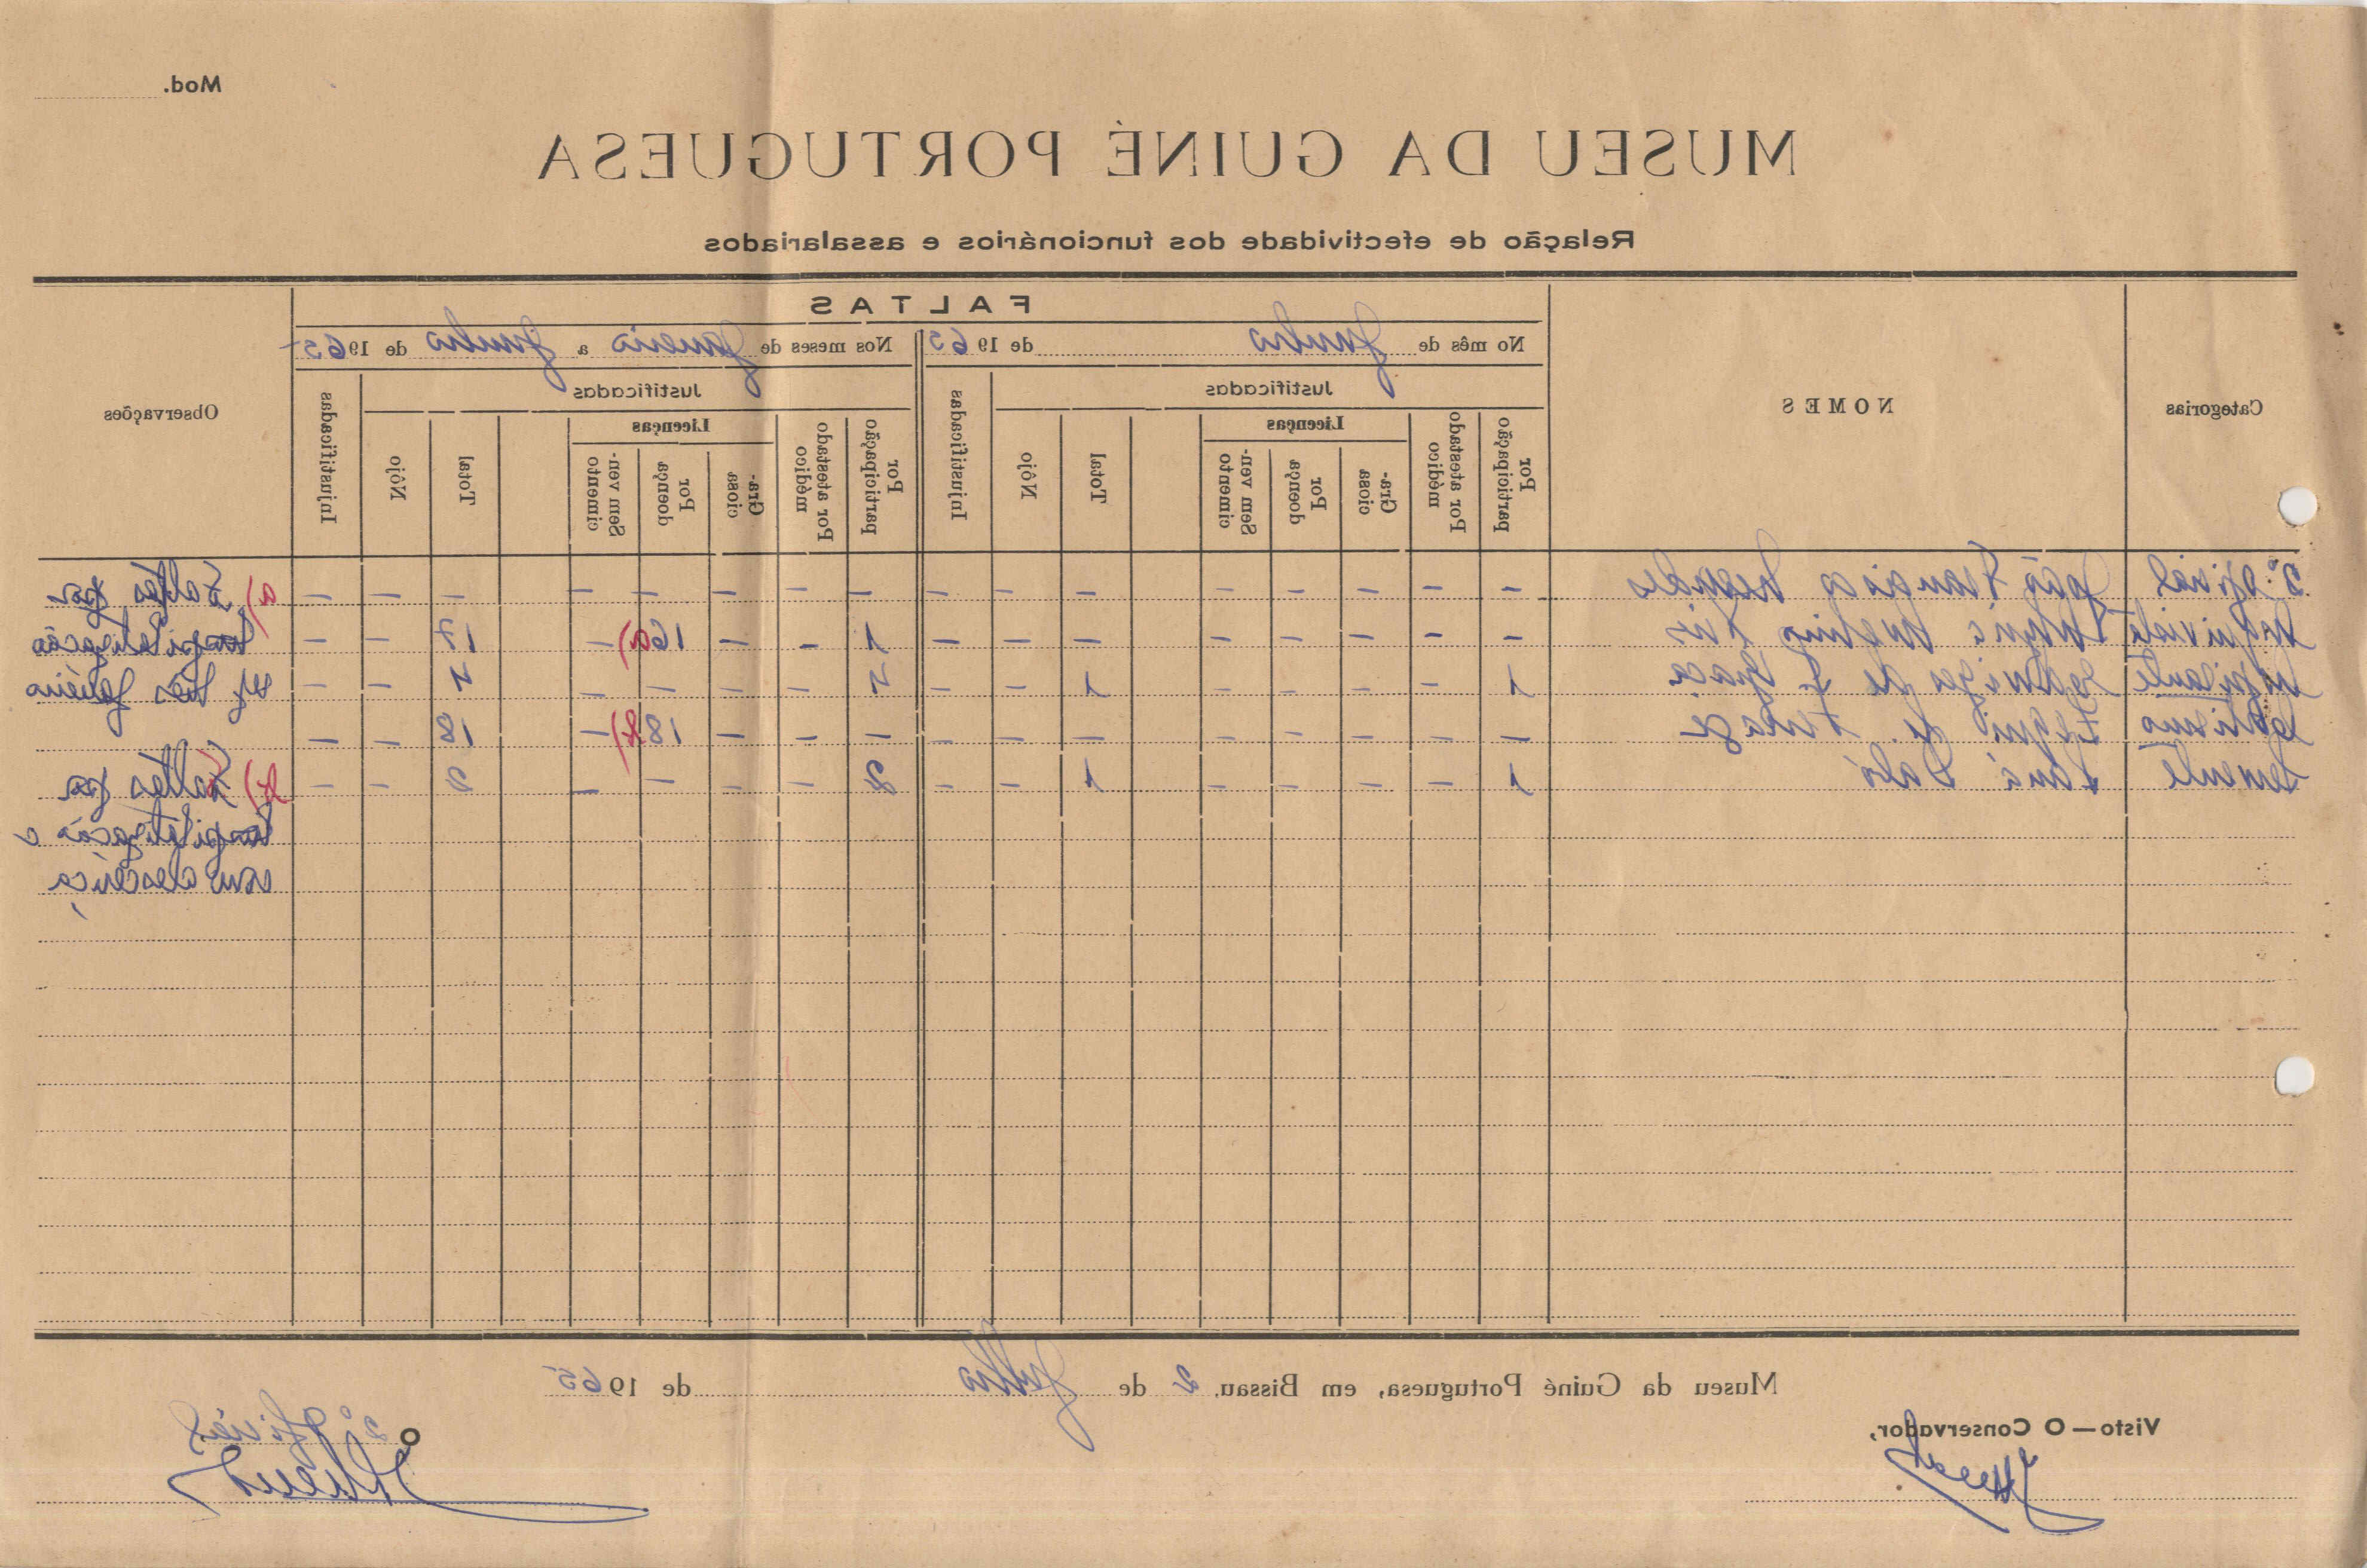 Mod.
MUSEU DA GUINÉ PORTUGUESA
Relação de efectividade dos funcionários e assalariados
Categorias
NOMES
FALTAS
No mês de Junho de 1965
Nos meses de Janeiro a Junho de 1965
Justificadas
Por participação
Por atestado médico
Licenças
Gra-ciosa
Por doença
Sem ven-cimento
Total
Nojo
Injustificadas
Justificadas
Por participação
Por atestado médico
Licenças
Gra-ciosa
Por doença
Sem ven-cimento
Total
Nojo
Injustificadas
Observações
2.º Oficial João Francisco – – – – – – – – – – – – – – – – a) Faltas por
Arquivista – – – – – – – – 1 – – 16 a) – 17 – – hospitalização
1 – – – – 1 – – 4 – – – – 4 – – em Janeiro
– – – – – – – – – – – 18 b) – 18 – –
Servente Dabó 1 – – – – 1 – – 2 – – – – 2 – – b) Faltas por
hospitalização e
Museu da Guiné Portuguesa, em Bissau, 2 de Julho de 1965
Visto—O Conservador,
O 2.º Oficial